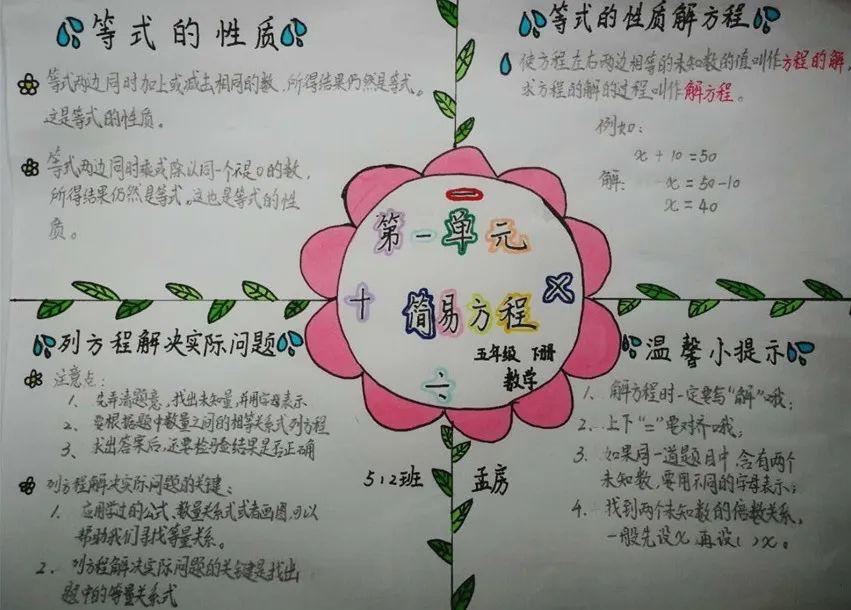 等式的性质
等式两边同时加上或减去相同的数，所得结果仍然是等式。
这是等式的性质。
等式两边同时乘或除以同一个不是0的数，
所得结果仍然是等式。这也是等式的性
质。
等式的性质解方程
使方程左右两边相等的未知数的值叫作方程的解，
求方程的解的过程叫作解方程。
例如：
x+10=50
解： x=50-10
x=40
第一单元
简易方程
五年级 下册
数学
+
-
×
÷
列方程解决实际问题
注意点：
1、先弄清题意，找出未知量，并用字母表示
2、要根据题中数量之间的相等关系式列方程
3、求出答案后，还要检验结果是否正确
列方程解决实际问题的关键：
1、应用学过的公式、数量关系式或者画图，可以
帮助我们寻找等量关系。
2、列方程解决实际问题的关键是找出
题中的等量关系式
5.2班 孟房
温馨小提示
1、解方程时一定要写“解”哦；
2、上下“=”要对齐哦；
3、如果同一道题目中，含有两个
未知数，要用不同的字母表示；
4、找到两个未知数的倍数关系，
一般先设x，再设( )x。